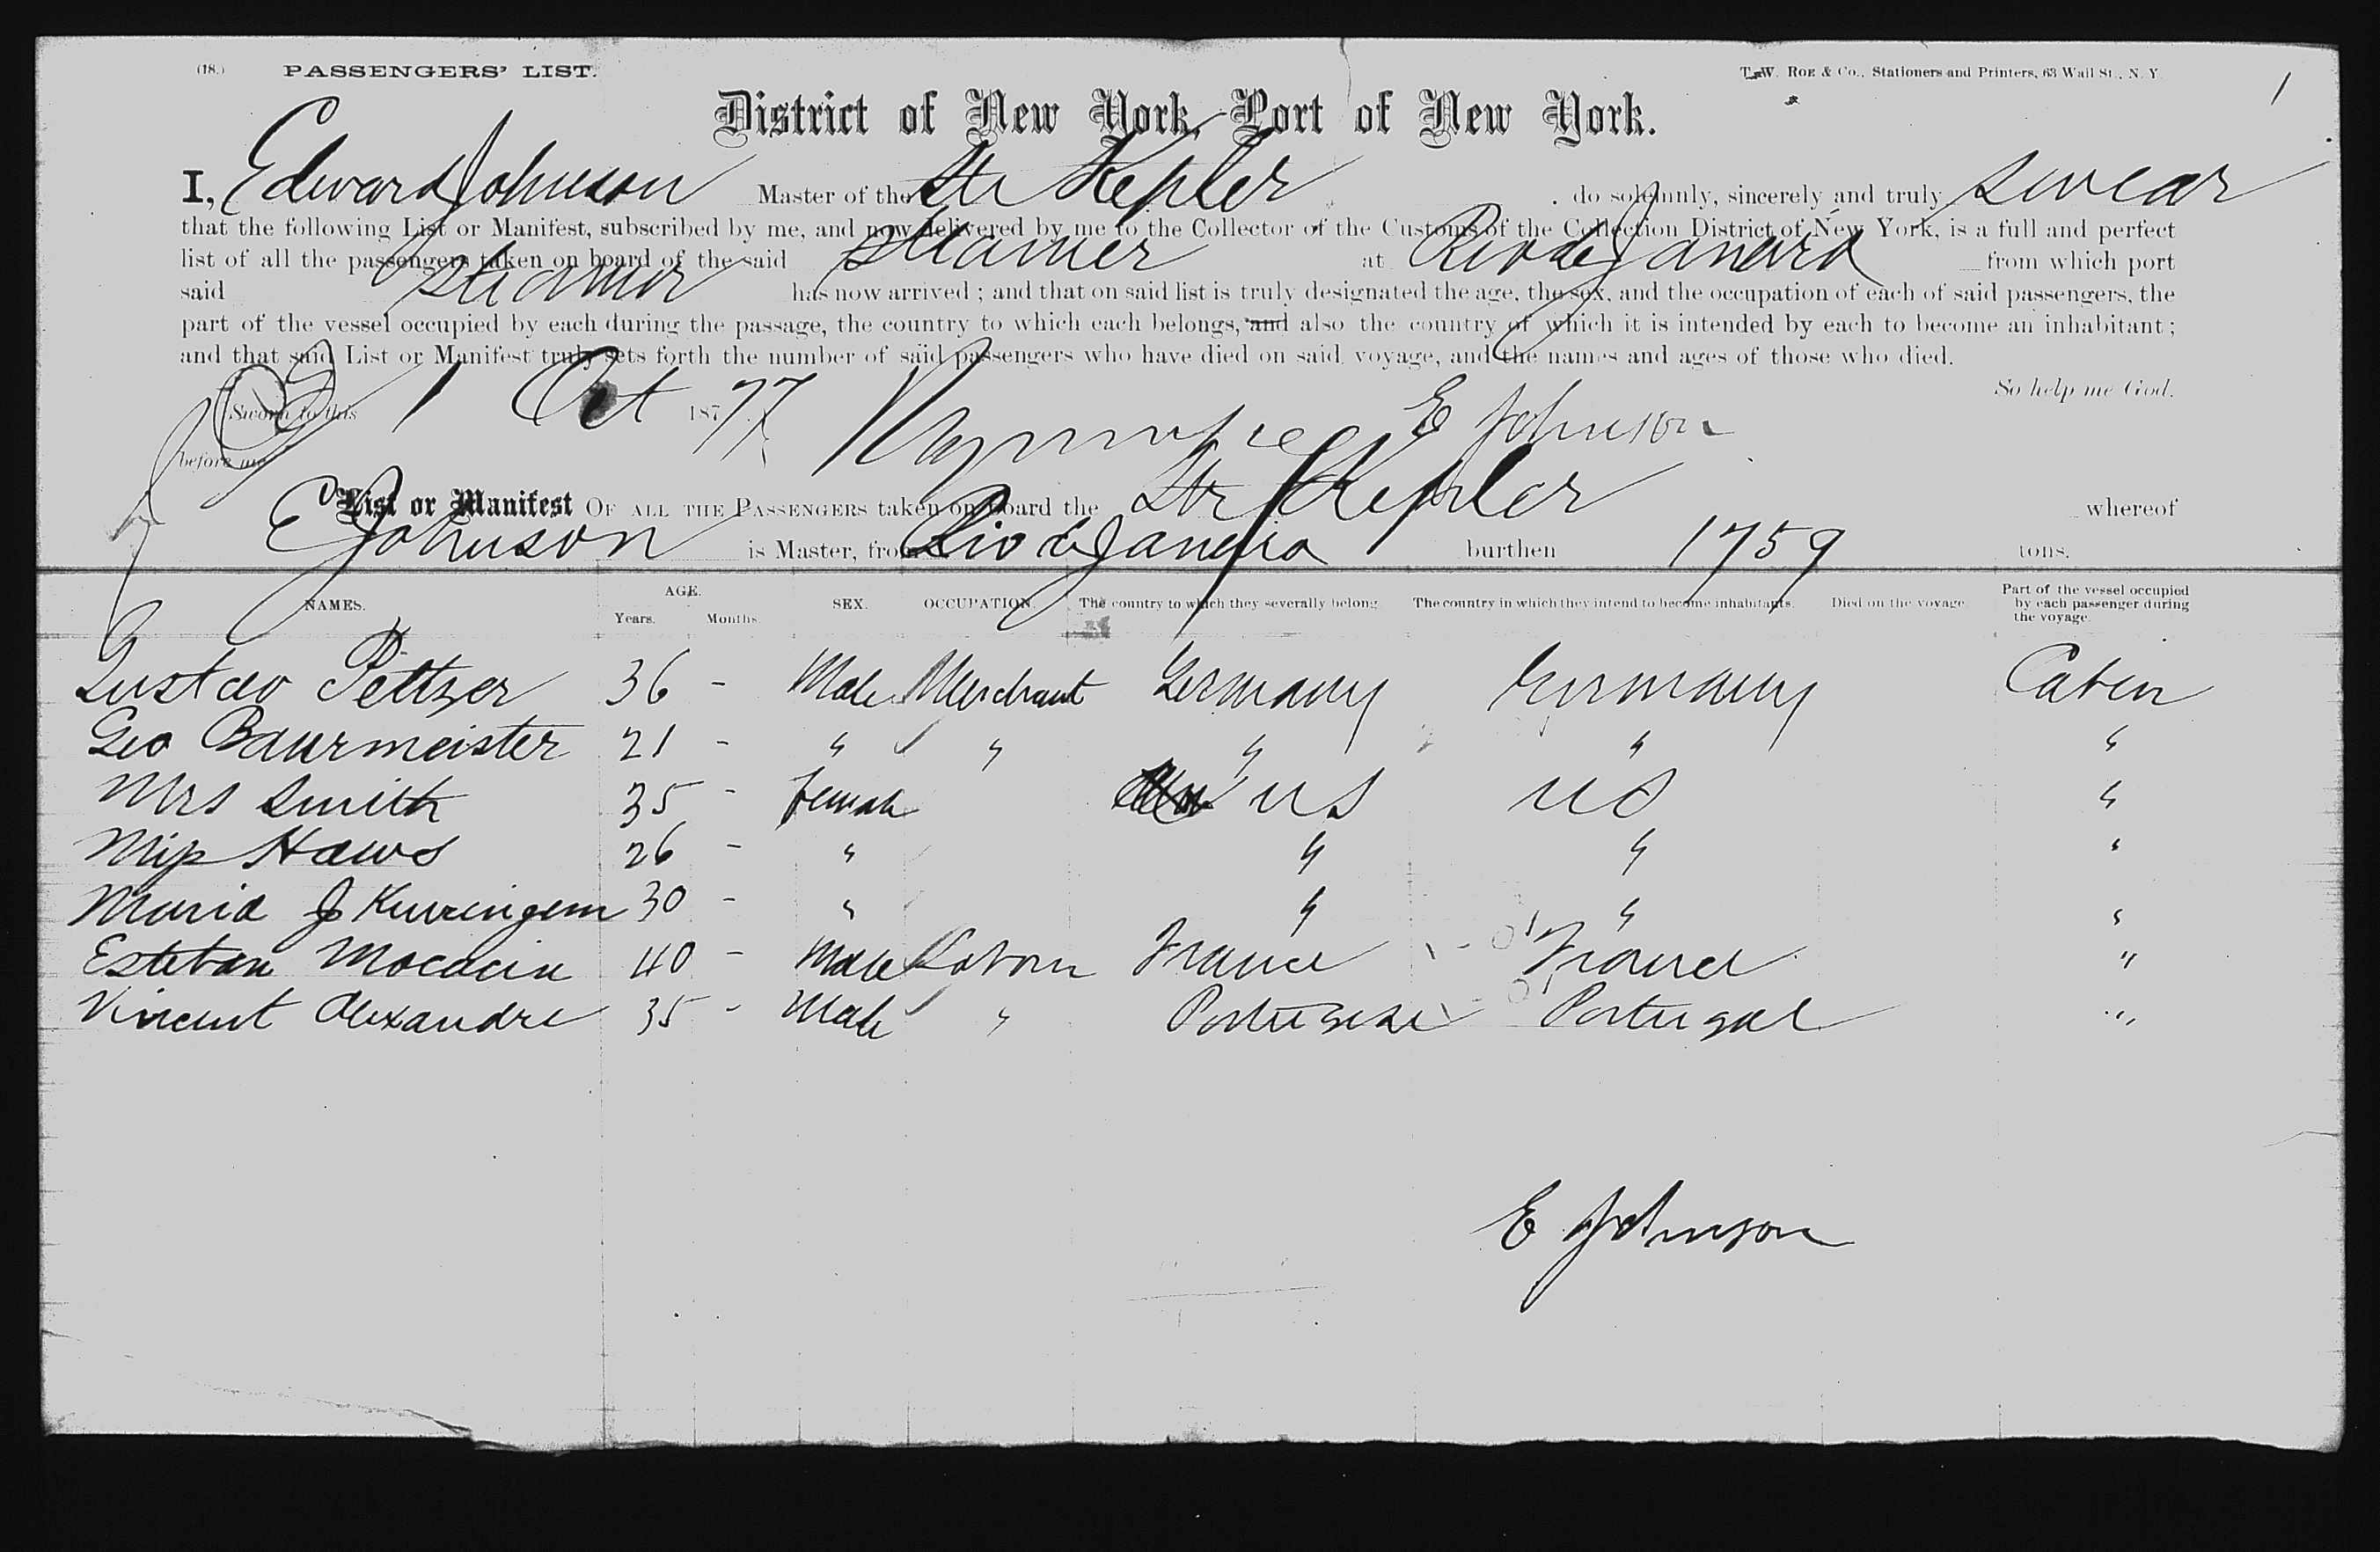 (18.) PASSENGERS' LIST. T. W. ROE & Co., Stationers and Printers, 63 Wall St., N. Y. 1
District of New York, Port of New York.
I, Edward Johnson Master of the Str Kepler do solemnly, sincerely and truly swear
that the following List or Manifest, subscribed by me, and now delivered by me to the Collector of the Customs of the Collection District of New York, is a full and perfect
list of all the passengers taken on board of the said Steamer at Rio de Janeiro from which port
said Steamer has now arrived ; and that on said list is truly designated the age, the sex, and the occupation of each of said passengers, the
part of the vessel occupied by each during the passage, the country to which each belongs, and also the country of which it is intended by each to become an inhabitant ;
and that said List or Manifest truly sets forth the number of said passengers who have died on said voyage, and the names and ages of those who died.
So help me God.
Sworn to this 1 Oct 1877 E Johnson
before me
List or Manifest OF ALL THE PASSENGERS taken on board the Str Kepler whereof
E Johnson is Master, from Rio de Janeiro burthen 1759 tons.
NAMES. AGE. Years. Months. SEX. OCCUPATION. The country to which they severally belong. The country in which they intend to become inhabitants. Died on the voyage. Part of the vessel occupied by each passenger during the voyage.
Gustav Peltzer 36 - Male Merchant Germany Germany Cabin
Geo Baurmeister 21 - " " " " "
Mrs Smith 35 - Female US US "
Miss Haws 26 - " " " "
Maria J 30 - " " " "
Esteban 40 - Male France France "
Vincent Alexandre 35 - Male " Portugese Portugal "
E Johnson